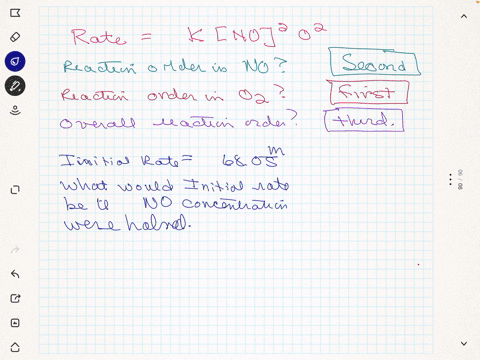 Rate = K [NO]² O²
Reaction order in NO? Second
Reaction order in O₂? First
Overall reaction order? third.
Initial Rate = 68.0 m/s
What would Initial rate
be if NO concentration
were halved.